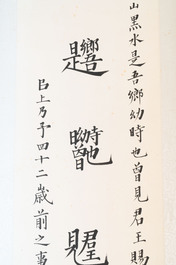 山黑水是吾鄉幼時也曾見君王賜
㠯上乃予四十二歲前之事